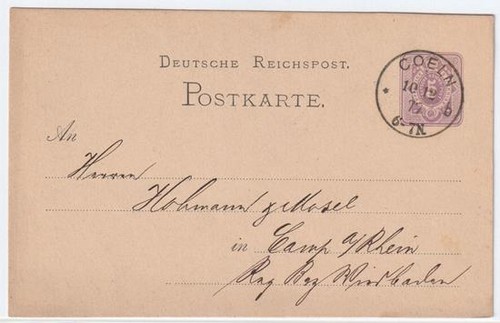 DEUTSCHE REICHSPOST.
POSTKARTE.
COELN
10 12
6-7N.
An
Herren
Hohmann & Mosel
in Camp a/Rhein
Reg Bez Wiesbaden